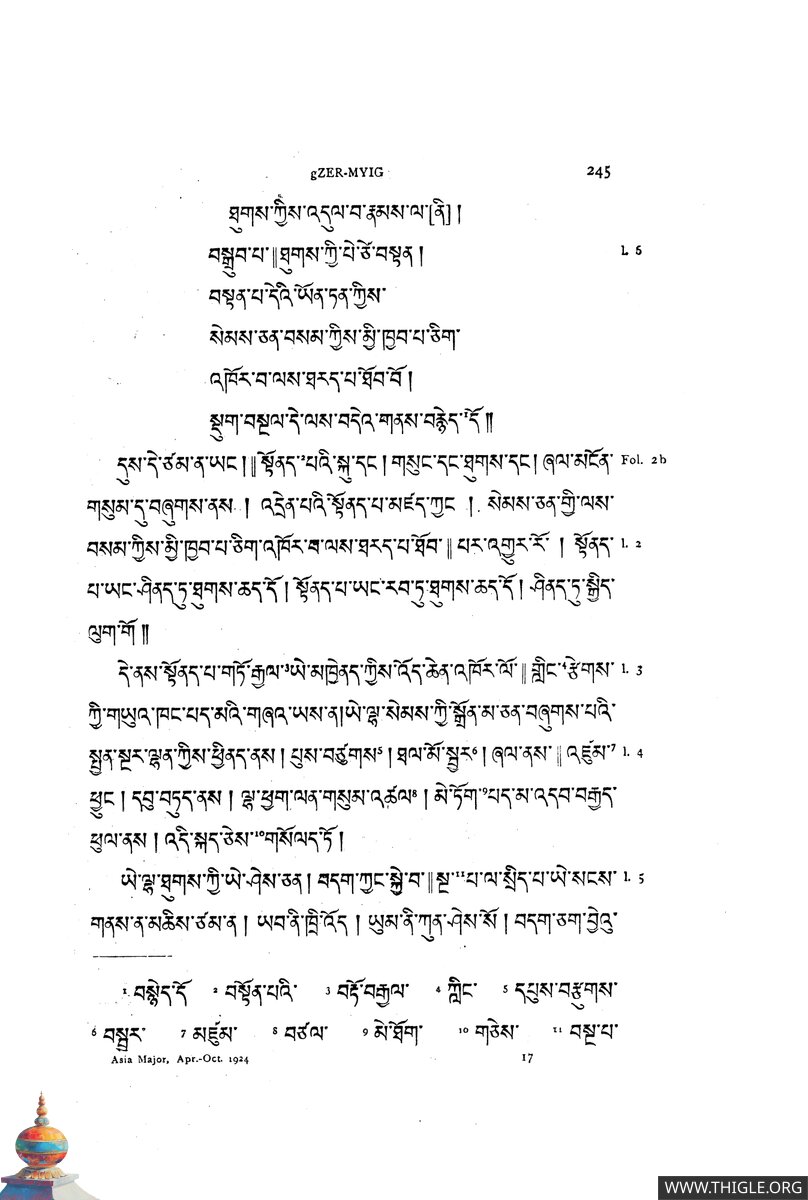 gZER-MYIG 245
ཐུགས་ཀྱིས་འདུལ་བ་རྣམས་ལ་[ནི]།
བསྒྲུབ་པ་༎ཐུགས་ཀྱི་པེ་ཙེ་བསྟན། l. 6
བསྟན་པ་དེའི་ཡོན་ཏན་ཀྱིས་
སེམས་ཅན་བསམ་ཀྱིས་མྱི་ཁྱབ་པ་ཅིག་
འཁོར་བ་ལས་ཐརད་པ་ཐོབ་བོ།
སྡུག་བསྔལ་དེ་ལས་བདེའེ་གནས་བརྙེད་¹དོ༎
དུས་དེ་ཙམ་ན་ཡང།༎སྟོནད་²པའི་སྐུ་དང། གསུང་དང་ཐུགས་དང། ཞལ་མངོན་ Fol. 2b
གསུམ་དུ་བཞུགས་ནས། འདྲེན་པའི་སྟོནད་པ་མཛད་ཀྱང །. སེམས་ཅན་གྱི་ལས་
བསམ་ཀྱིས་མྱི་ཁྱབ་པ་ཅིག་འཁོར་བ་ལས་ཐརད་པ་ཐོབ་༎པར་འགྱུར་རོ་ ། སྟོནད་ l. 2
པ་ཡང་ཤིནད་ཏུ་ཐུགས་ཆད་དོ། སྟོནད་པ་ཡང་རབ་ཏུ་ཐུགས་ཆད་དོ། ཤིནད་ཏུ་སྐྱིད་
ལུག་གོ༎
དེ་ནས་སྟོནད་པ་གཏོ་རྒྱལ་³ཡེ་མཁྱེནད་ཀྱིས་འོད་ཆེན་འཁོར་ལོ་༎གླིང་⁴རྩེགས་ l. 3
ཀྱི་གཡུའ་ཁང་པད་མའི་གཞའ་ཡས་ན།ཡེ་ལྷ་སེམས་ཀྱི་སྒྲོན་མ་ཅན་བཞུགས་པའི་
སྤྱན་སྔར་ལྷན་ཀྱིས་ཕྱིནད་ནས། པུས་བཙུགས⁵། ཐལ་མོ་སྦྱར⁶། ཞལ་ནས་༎འཛུམ་⁷ l. 4
ཕྱུང། དབུ་བཏུད་ནས། ལྷ་ཕྱག་ལན་གསུམ་འཚལ⁸། མེ་ཏོག་⁹པད་མ་འདབ་བརྒྱད་
ཕུལ་ནས། འདི་སྐད་ཅེས་¹⁰གསོལད་ཏོ།
ཡེ་ལྷ་ཐུགས་ཀྱི་ཡེ་ཤེས་ཅན། བདག་ཀྱང་སྐྱེ་བ་༎སྔ་¹¹པ་ལ་སྲིད་པ་ཡེ་སངས་ l. 5
གནས་ན་མཆིས་ཙམ་ན། ཡབ་ནི་ཁྲི་འོད། ཡུམ་ནི་ཀུན་ཤེས་སོ། བདག་ཅག་བྱེའུ་
¹ བསྙེད་དོ ² བསྟོན་པའི་ ³ བརྡོ་བརྒྱལ་ ⁴ ཀླིང་ ⁵ དཔུས་བརྩུགས་
⁶ བསྦྱར་ ⁷ མཛུམ་ ⁸ བཙལ་ ⁹ མེ་ཐོག་ ¹⁰ གཅེས་ ¹¹ བསྔ་པ་
Asia Major, Apr.-Oct. 1924 17
WWW.THIGLE.ORG